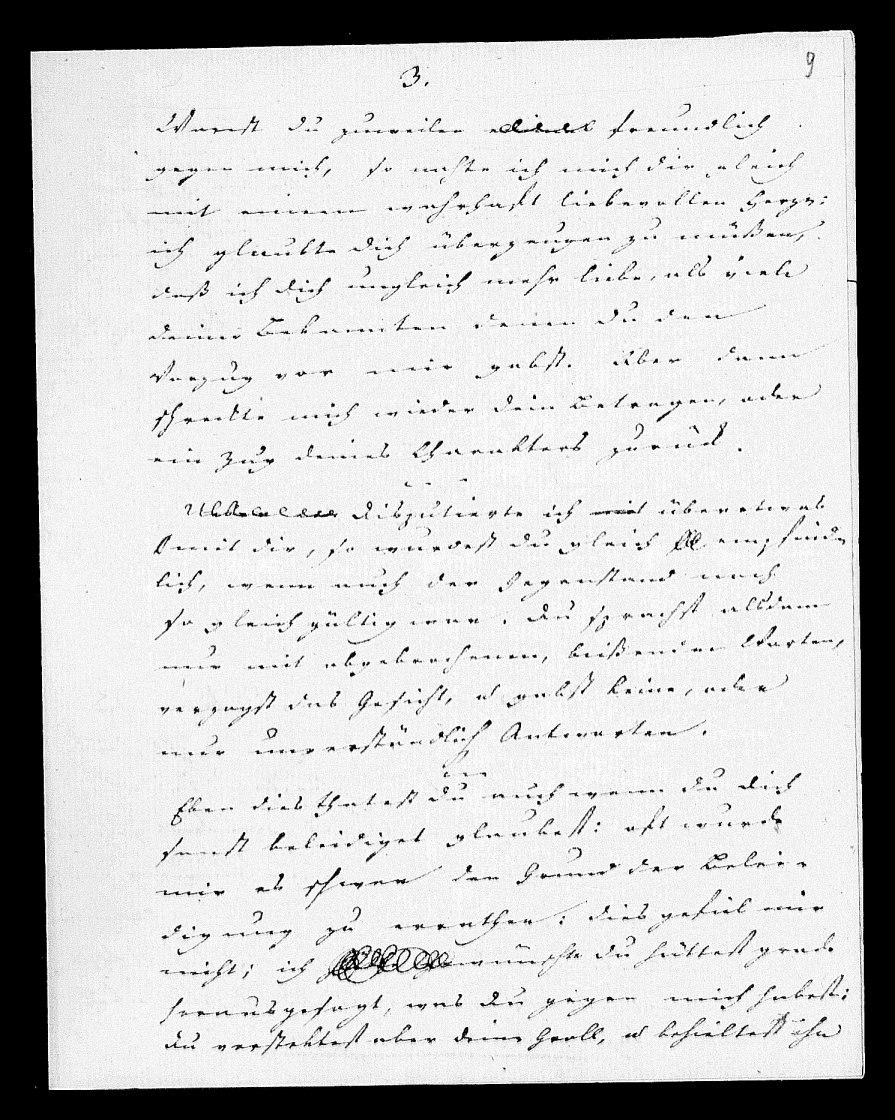 3.
9
Warest du zuweilen freundlich
gegen mich, so nahte ich mich dir gleich
mit einem wahrhaft liebevollen Herze;
ich glaubte dich überzeugen zu müßen,
daß ich dich ungleich mehr liebe, als viele
deiner Bekannten denen du den
Vorzug vor mir gabst. Aber dann
schreckte mich wieder dein Betragen, oder
ein Zug deines Charakters zurück.
disputierte ich mit über etwas
mit dir, so wurdest du gleich empfind-
lich, wenn auch der Gegenstand noch
so gleichgültig war. Du sprachst alsdann
nur mit abgebrochenen, beißenden Worten,
verzogst das Gesicht, u gabst keine, oder
nur unverständlich Antworten.
Eben dies thatest du auch wenn du dich
sonst beleidiget glaubest: oft wurde
mir es schwer den Grund der Belei-
digung zu errathen; dies gefiel mir
nicht; ich wünschte du hättest grade
herausgesagt, was du gegen mich habest;
du verstektest aber deine Groll, u behieltest ihn